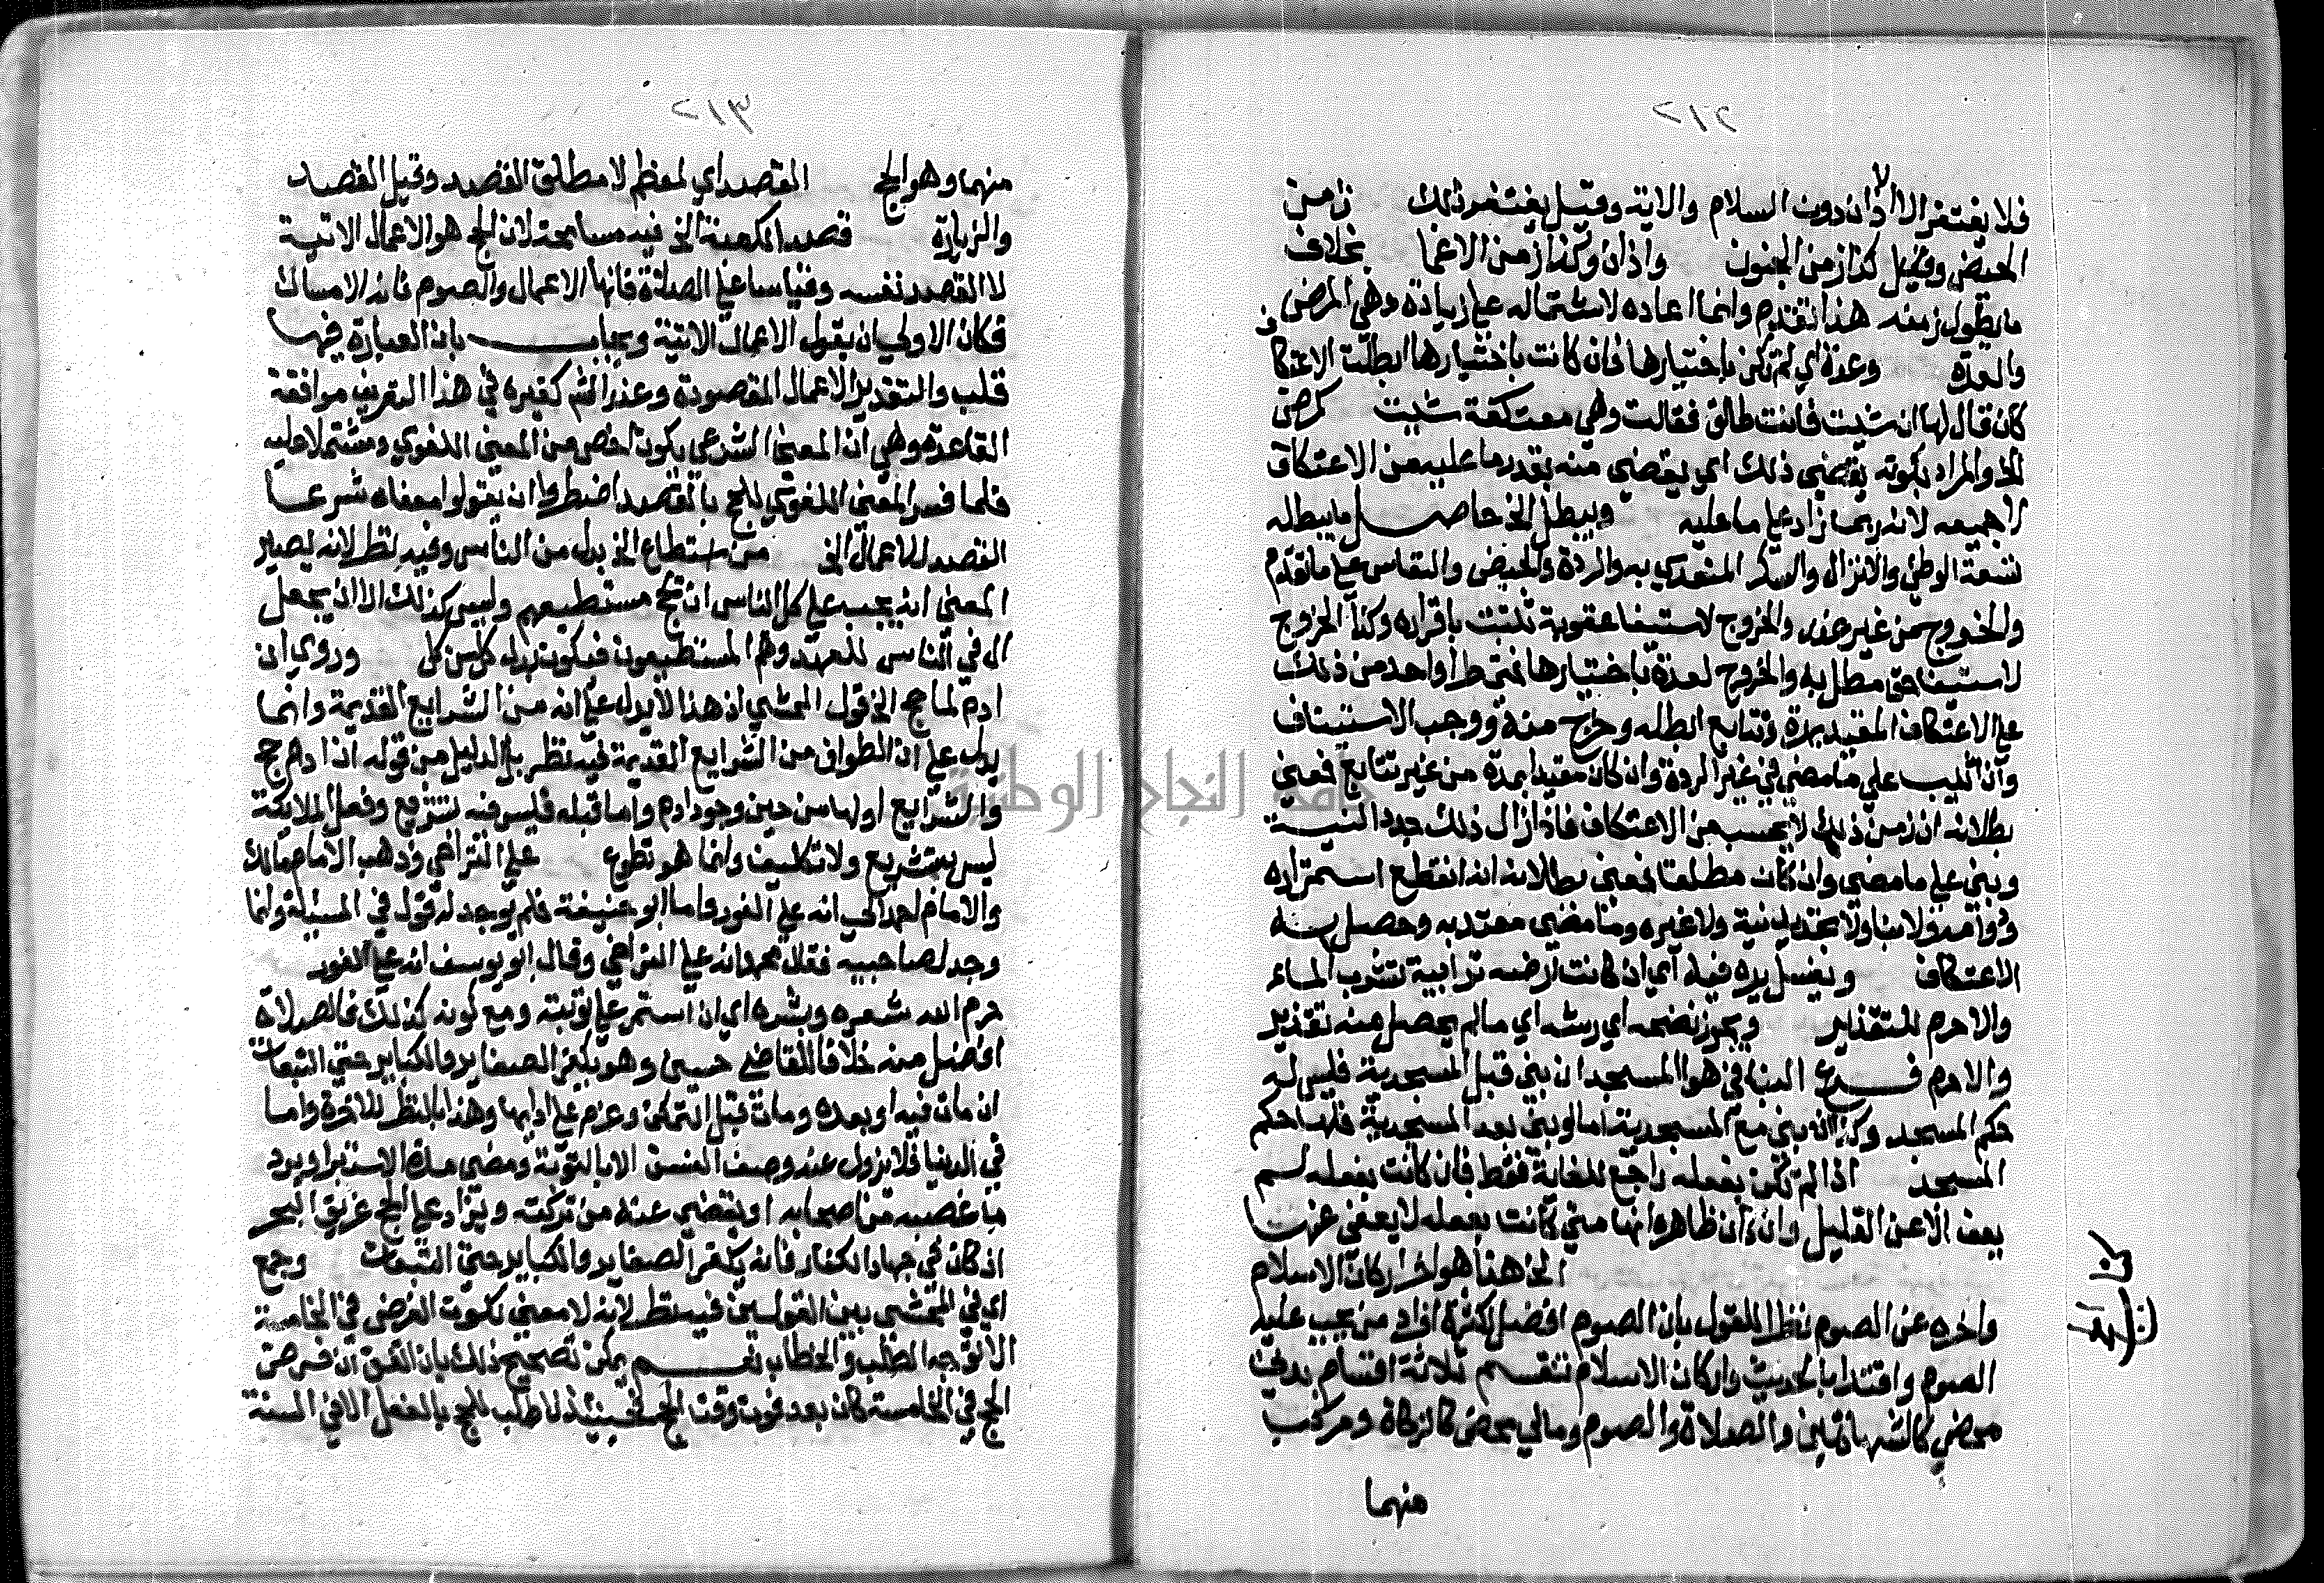 ٢١٢
فلا يغتفر الا الاذان دون السلام والاية وقيل يغتفر ذلك زمن
الحيض وقيل كذا زمن الجنون واذان وكذا زمن الاغما بخلاف
ما يطول زمنه هذا تقدم وانما اعاده لاشتماله على زيادة وهي المرض
والعدة وعدة اي لم تكن باختيارها فان كانت باختيارها ابطلت الاعتكاف
كان قال لها ان شيت فانت طالق فقالت وهي معتكفة شيت كمرض
الخ والمراد بكونه يقضي ذلك اي يقضي منه بقدر ما عليه من الاعتكاف
لا جميعه لانه ربما زاد على ما عليه ويبطل الخ حاصل ما يبطله
تسعة الوطئ والانزال والسكر المتعدي به والردة والحيض والنفاس على ما تقدم
والخروج من غير عذر والخروج لاستيفا عقوبة ثبتت باقراره وكذا الخروج
لاستيفا حق مطل به والخروج لعدة باختيارها فمتى طرا واحد من ذلك
على الاعتكاف المقيد بمدة وتتابع ابطله وخرج منه ووجب الاستيناف
وان اثيب على ما مضى في غير الردة وان كان مقيدا بمدة من غير تتابع فمعنى
بطلانه ان زمن ذلك لا يحسب من الاعتكاف فاذا زال ذلك جدد النية
وبنى على ما مضى وان كان مطلقا فمعنى بطلانه انه انقطع استمراره
ودوامه ولا بنا ولا تجديد نية ولا غيره وما مضى معتد به وحصل به
الاعتكاف ويغسل يده فيه اي ان كانت ارضه ترابية تشرب الماء
والا حرم للتقذير ويجوز نضحه اي رشه اي ما لم يحصل منه تقذير
والا حرم فرع البنا في هوا المسجد ان بني قبل المسجدية فليس له
حكم المسجد وكذا ان بني مع المسجدية اما لو بني بعد المسجدية فلها حكم
المسجد اذا لم تكن بفعله راجع للغاية فقط فان كانت بفعله لم
يعف الا عن القليل وان كان ظاهره انها متى كانت بفعله لا يعفى عنها
الخ هذا هو اخر اركان الاسلام
كتاب الحج
واخره عن الصوم نظرا للقول بان الصوم افضل لكثرة افراد من يجب عليه
الصوم واقتدا بالحديث واركان الاسلام تنقسم ثلاثة اقسام بدني
محض كالشهادتين والصلاة والصوم ومالي محض كالزكاة ومركب
منهما
٢١٣
منهما وهو الحج القصد اي لمعظم لا مطلق القصد وقيل القصد
والزيارة قصد الكعبة الخ فيه مسامحة لان الحج هو الاعمال الاتية
لا القصد نفسه وقياسا على الصلاة فانها الاعمال والصوم فانه الامساك
فكان الاولى ان يقول الاعمال الاتية ويجاب بان العبارة فيها
قلب والتقدير الاعمال المقصودة وعذر الش كغيره في هذا التعريف موافقة
القاعدة وهي ان المعنى الشرعي يكون اخص من المعنى اللغوي ومشتملا عليه
فلما فسر المعنى اللغوي للحج بالقصد اضطروا ان يقولوا معناه شرعا
القصد للاعمال الخ من استطاع الخ بدل من الناس وفيه نظر لانه يصير
المعنى انه يجب على كل الناس ان يحج مستطيعهم وليس كذلك الا ان يجعل
ال في الناس للعهد وهم المستطيعون فيكون بدل كل من كل وروي ان
ادم لما حج الخ قول المحشي ان هذا لا يدل على انه من الشرايع القديمة وانما
يدل على ان الطواف من الشرايع القديمة فيه نظر بل الدليل من قوله ان ادم حج
والشرايع اولها من حين وجود ادم واما قبله فليس فيه تشريع وفعل الملائكة
ليس بتشريع ولا تكليف وانما هو تطوع على التراخي وذهب الامام مالك
والامام احمد الى انه على الفور واما ابو حنيفة فلم يوجد له قول في المسئلة وانما
وجد لصاحبيه فقال محمد انه على التراخي وقال ابو يوسف انه على الفور
حرم الله شعره وبشره اي ان استمر على توبته ومع كونه كذلك فالصلاة
افضل منه خلافا للقاضي حسين وهو يكفر الصغاير والكباير حتى التبعات
ان مات فيه او بعده ومات قبل التمكن وعزم على ادائها وهذا بالنظر للاخرة واما
في الدنيا فلا يزول عنه وصف الفسق الا بالتوبة ومضي مدة الاستبرا ويرد
ما غصبه من اصحابه او يقضى عنه من تركته ويزاد على الحج غريق البحر
اذ كان في جهاد الكفار فانه يكفر الصغاير والكباير حتى التبعات وجمع
اي في المحشي بين القولين فيه نظر لانه لا معنى لكون الفرض في الخامسة
الا توجه الطلب والخطاب نعم يمكن تصحيح ذلك بان اتفق ان فرض
الحج في الخامسة كان بعد فوت وقت الحج فحينئذ لا طلب للحج بالفعل الا في السنة
جامعة النجاح الوطنية